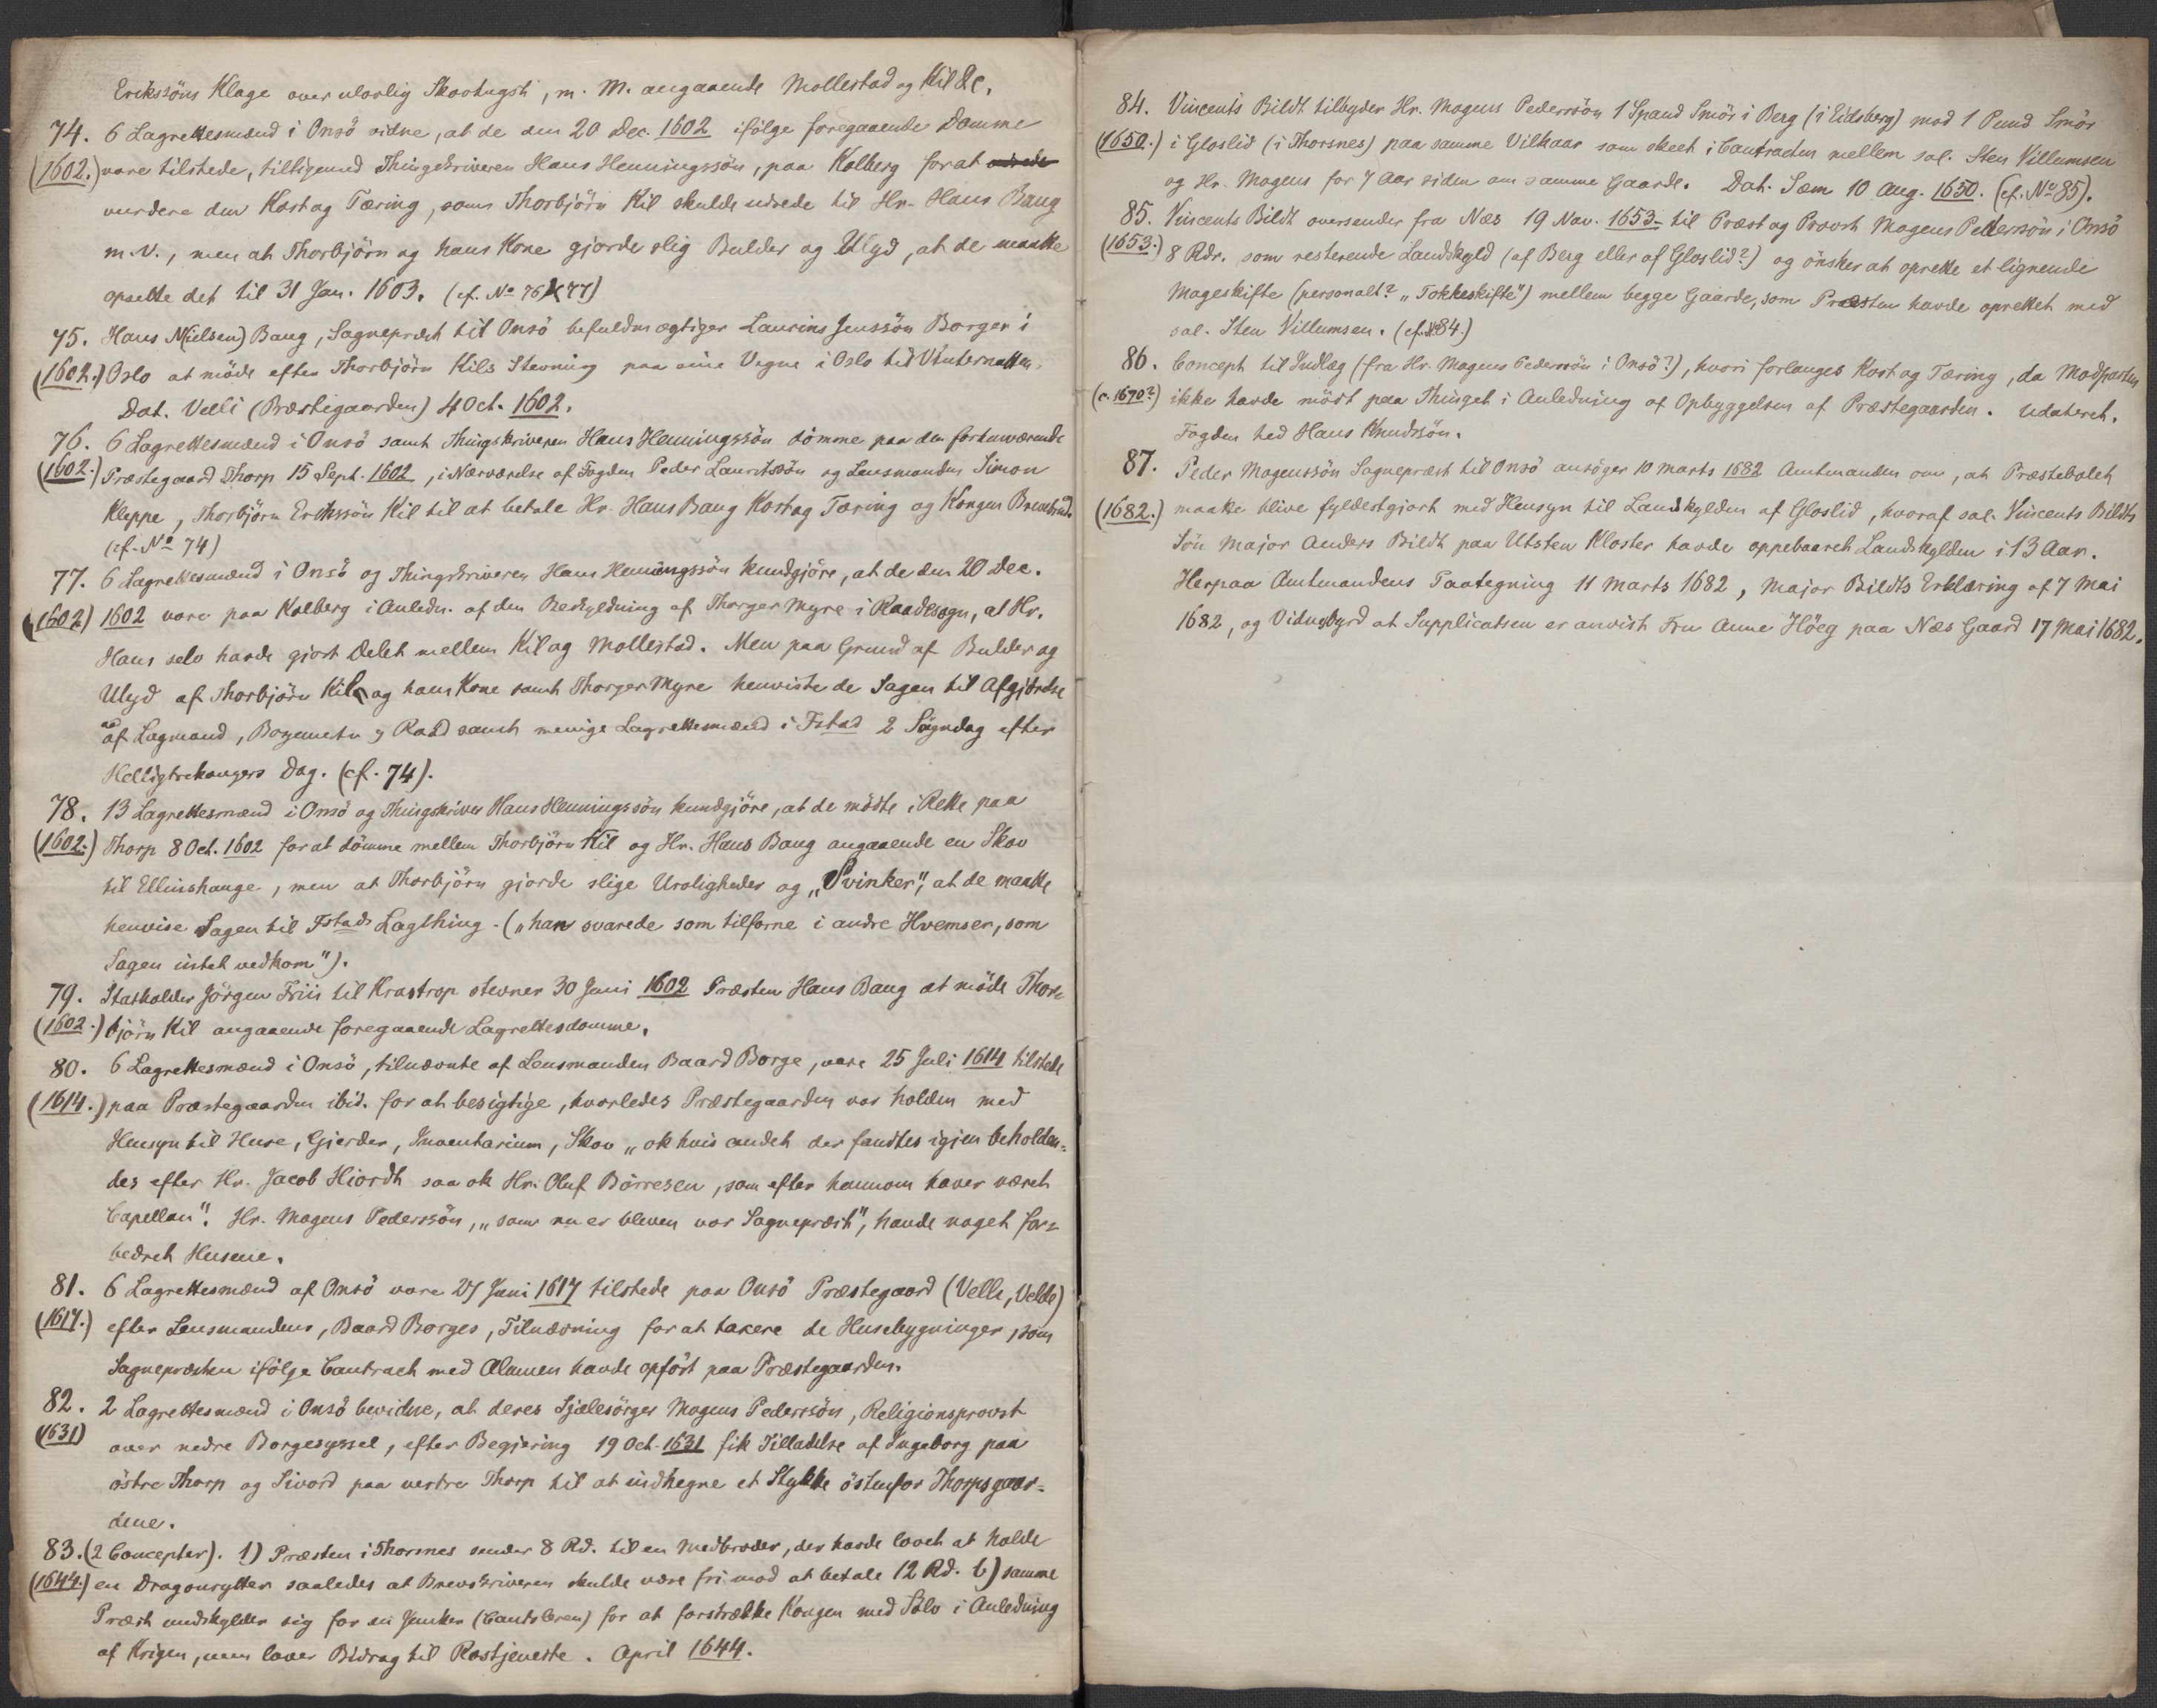 Erikssöns Klage over ulovlig Skovhugst, m. M. angaaende Mollestad og Kil &c.
74. 6 Lagrettesmænd i Onsö vidne, at de den 20 Dec. 1602 ifölge foregaaende Domme
(1602.) vare tilstede, tilligemed Thingskriveren Hans Henningssön, paa Kolberg for at
vurdere den Kost og Tæring, som Thorbjörn Kil skulde udrede til Hr. Hans Bang
m. V., men at Thorbjörn og hans Kone gjorde slig Bulder og Ulyd, at de maatte
opsette det til 31 Jan. 1603. (cf. No 76 & 77)
75. Hans N(ielsen) Bang, Sognepræst til Onsö befuldmægtiger Laurins Jenssön Borger i
(1602.) Oslo at möde efter Thorbjörn Kils Stevning paa sine Vegne i Oslo til Vinternatten.
Dat. Velli (Præstegaarden) 4 Oct. 1602.
76. 6 Lagrettesmænd i Onsö samt Thingskriveren Hans Henningssön dömme paa den forhenværende
(1602.) Præstegaard Thorp 15 Sept. 1602, i Nærværelse af Fogden Peder Lauritssön og Lensmanden Simon
Kleppe, Thorbjörn Erikssön Kil til at betale Hr. Hans Bang Kost og Tæring og Kongen Brevebrud.
(cf. No 74)
77. 6 Lagrettesmænd i Onsö og Thingskriveren Hans Henningssön kundgjöre, at de den 20 Dec.
(1602) 1602 vare paa Kolberg i Anledn. af den Beskyldning af Thorger Myre i Raadesogn, at Hr.
Hans selv havde gjort Delet mellem Kil og Mollestad. Men paa Grund af Bulder og
Ulyd af Thorbjörn Kil og hans Kone samt Thorger Myre henviste de Sagen til Afgjörelse
af Lagmand, Borgemester og Raad samt menige Lagrettesmænd i Fstad 2 Sögndag efter
Helligtrekongers Dag. (cf. 74).
78. 13 Lagrettesmænd i Onsö og Thingskriver Hans Henningssön kundgjöre, at de mödte i Rette paa
(1602.) Thorp 8 Oct. 1602 for at dömme mellem Thorbjörn Kil og Hr. Hans Bang angaaende en Skov
til Ellinshauge, men at Thorbjörn gjorde slige Uroligheder og „Svinker", at de maatte
henvise Sagen til Fstads Lagthing. („han svarede som tilforne i andre Hvemser, som
Sagen intet vedkom").
79. Statholder Jörgen Friis til Krastrop stevner 30 Juni 1602 Præsten Hans Bang at möde Thor-
(1602.) björn Kil angaaende foregaaende Lagrettesdomme.
80. 6 Lagrettesmænd i Onsö, tilnævnte af Lensmanden Baard Borge, vare 25 Juli 1614 tilstede
(1614.) paa Præstegaarden ibid. for at besigtige, hvorledes Præstegaarden var holden med
Hensyn til Huse, Gjerder, Inventarium, Skov „ok hvis andet der fandtes igjen beholden-
des efter Hr. Jacob Hiordt saa ok Hr. Oluf Börresen, som efter hannom haver været
Capellan". Hr. Mogens Pederssön, „som nu er bleven vor Sognepræst", havde noget for-
bedret Husene.
81. 6 Lagrettesmænd af Onsö vare 27 Juni 1617 tilstede paa Onsö Præstegaard (Velle, Velde)
(1617.) efter Lensmandens, Baard Borges, Tilnævning for at taxere de Husebygninger, som
Sognepræsten ifölge Contract med Almuen havde opfört paa Præstegaarden.
82. 2 Lagrettesmænd i Onsö bevidne, at deres Sjælesörger Mogens Pederssön, Religionsprovst
(1631) over nedre Borgesyssel, efter Begjæring 19 Oct. 1631 fik Tilladelse af Ingeborg paa
östre Thorp og Sivord paa vestre Thorp til at indhegne et Stykke östenfor Thorpsgaar-
dene.
83. (2 Concepter). 1) Præsten i Thorsnes sender 8 Rd. til en Medbroder, der havde lovet at holde
(1644.) en Dragonrytter saaledes at Brevskriveren skulde være fri mod at betale 12 Rd. b) samme
Præst undskylder sig for en Junker (Cantsleren) for at forstrække Kongen med Sölv i Anledning
af Krigen, men lover Bidrag til Rostjeneste. April 1644.
84. Vincents Bildt tilbyder Hr. Mogens Pederssön 1 Spand Smör i Berg (i Eidsberg) mod 1 Pund Smör
(1650.) i Gloslid (i Thorsnes) paa samme Vilkaar som skeet i Contracten mellem sal. Sten Villumsen
og Hr. Mogens for 7 Aar siden om samme Gaarde. Dat. Sem 10 Aug. 1650. (cf. No 85).
85. Vincents Bildt oversender fra Næs 19 Nov. 1653 til Præst og Provst Mogens Pederssön i Onsö
(1653.) 8 Rdr. som resterende Landskyld (af Berg eller af Gloslid?) og önsker at oprette et lignende
Mageskifte (personalt? „Tokkeskifte") mellem begge Gaarde, som Præsten havde oprettet med
sal. Sten Villumsen. (cf. No 84.)
86. Concept til Indlæg (fra Hr. Mogens Pederssön i Onsö?), hvori forlanges Kost og Tæring, da Modparten
(c. 1670?) ikke havde mödt paa Thinget i Anledning af Opbyggelsen af Præstegaarden. Udateret.
Fogden hed Hans Knudssön.
87. Peder Mogenssön Sognepræst til Onsö ansöger 10 Marts 1682 Amtmanden om, at Præstebolet
(1682.) maatte blive fyldestgjort med Hensyn til Landskylden af Gloslid, hvoraf sal. Vincents Bildts
Sön Major Anders Bildt paa Utsten Kloster havde oppebaaret Landskylden i 13 Aar.
Herpaa Amtmandens Paategning 11 Marts 1682, Major Bildts Erklæring af 7 Mai
1682, og Vidnesbyrd at Supplicatsen er anvist Fru Anne Höeg paa Næs Gaard 17 Mai 1682.